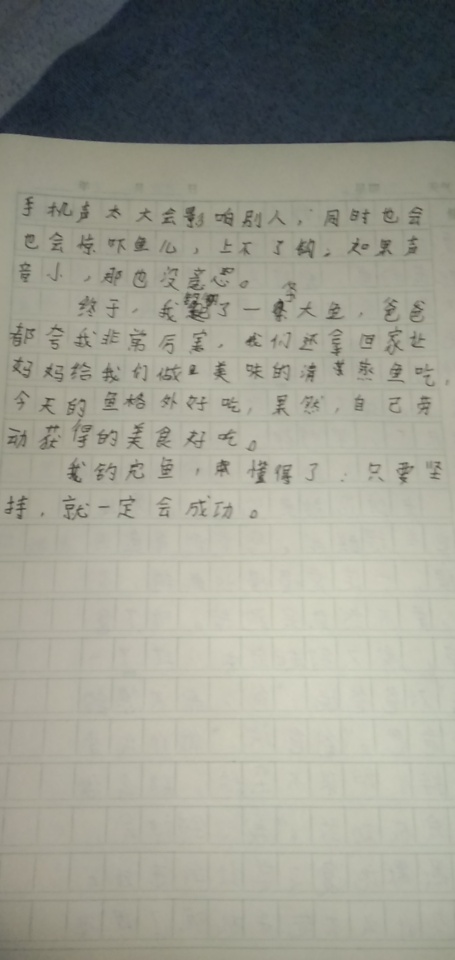 手机声太大会影响别人，同时也会
也会惊吓鱼儿，上不了钩。如果声
音小，那也没意思。
终于，我钓起了一条大鱼，爸爸
都夸我非常厉害，我们还拿回家让
妈妈给我们做了美味的清蒸鱼吃，
今天的鱼格外好吃，果然，自己劳
动获得的美食好吃。
我钓完鱼，懂得了：只要坚
持，就一定会成功。